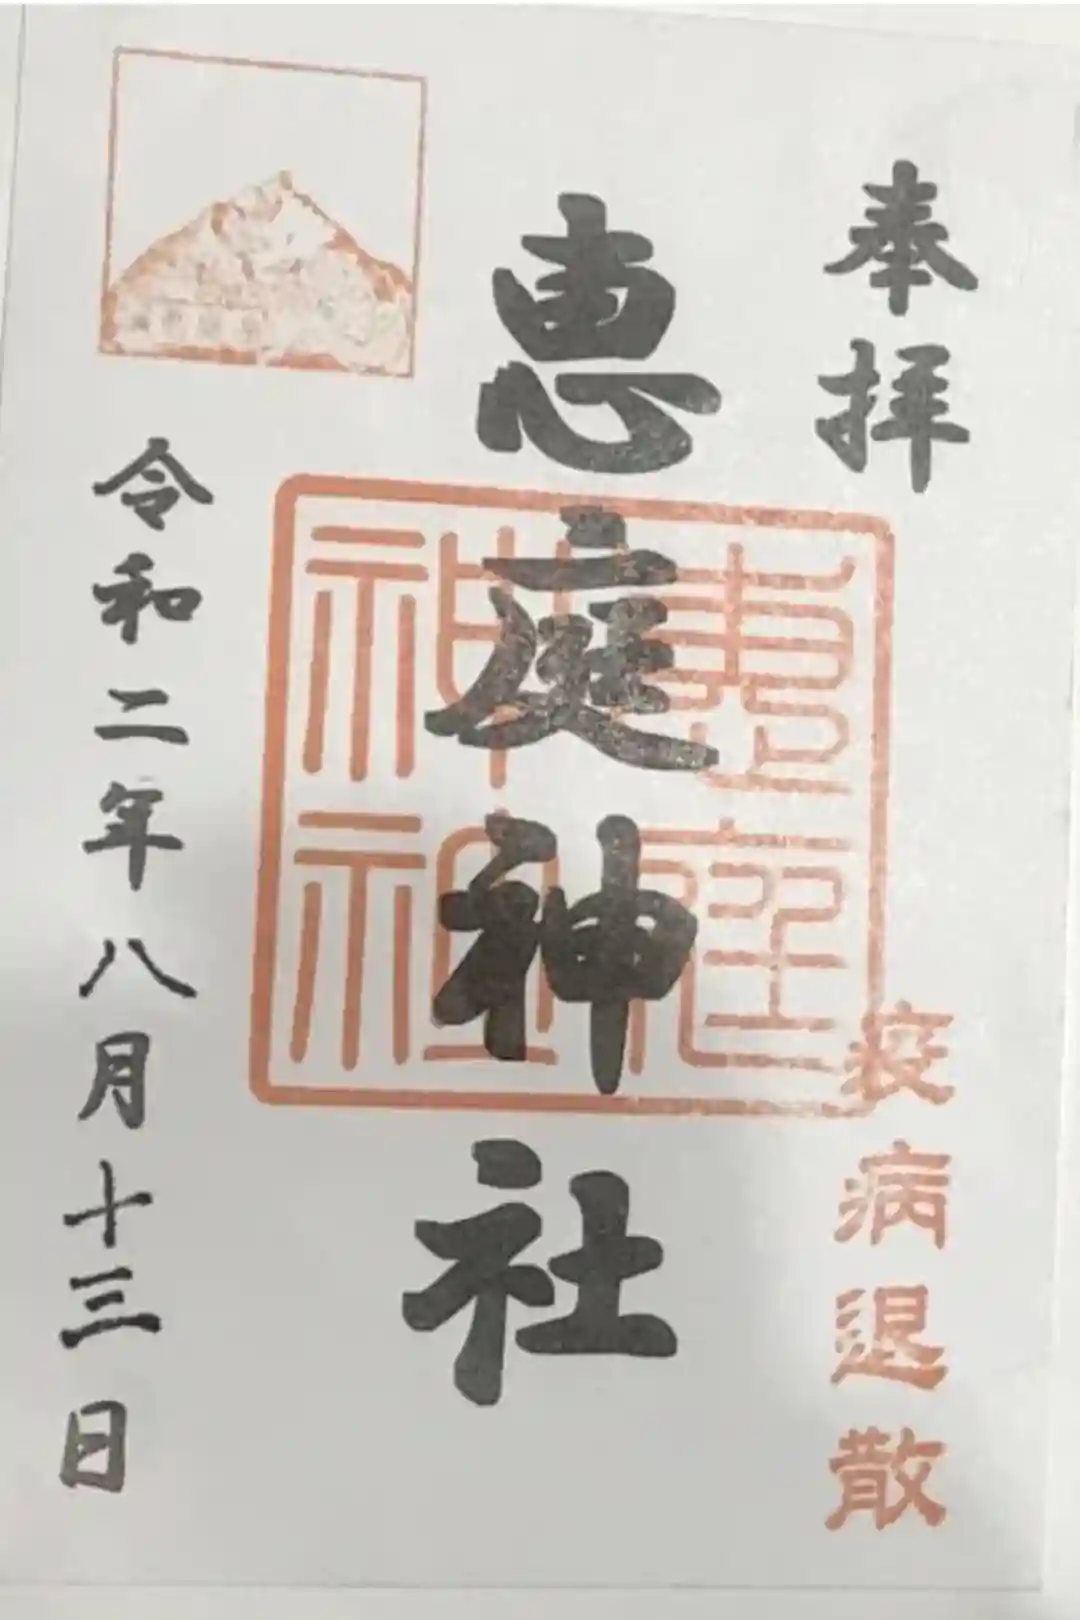 奉拝
疫病退散
恵庭神社
恵庭
神社
令和二年八月十三日